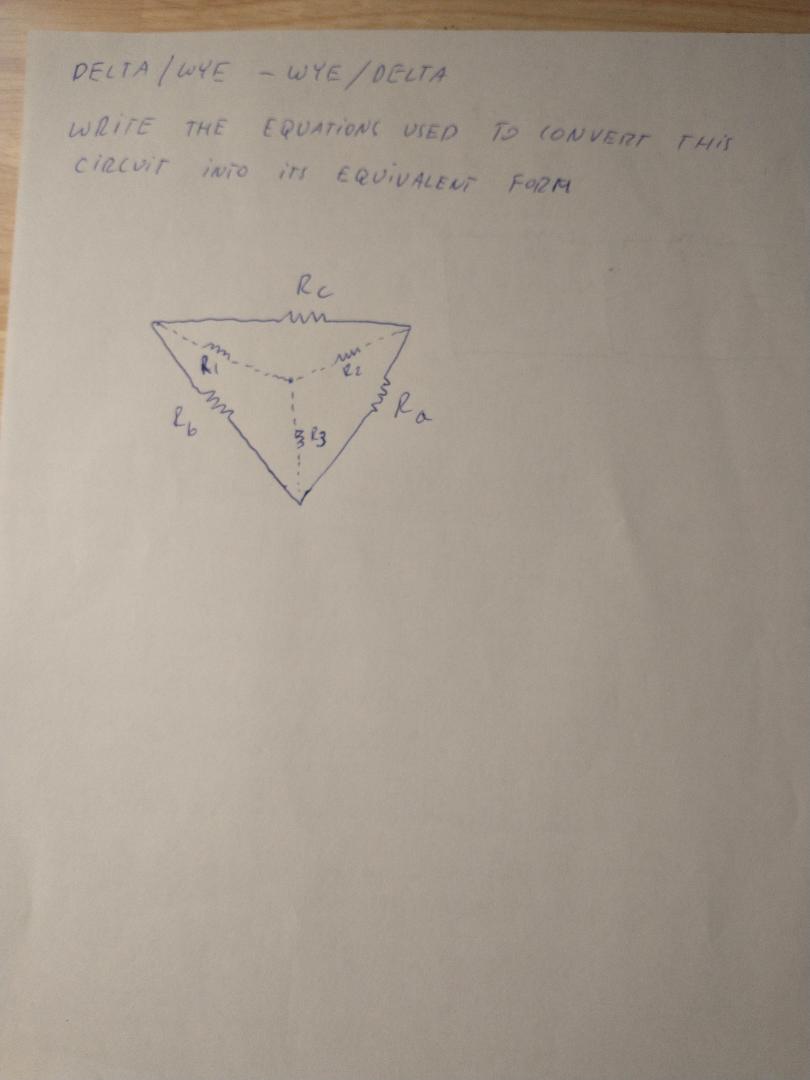 DELTA/WYE - WYE/DELTA
WRITE THE EQUATIONS USED TO CONVERT THIS
CIRCUIT INTO ITS EQUIVALENT FORM
Rc
R1
R2
Rb
Ra
R3